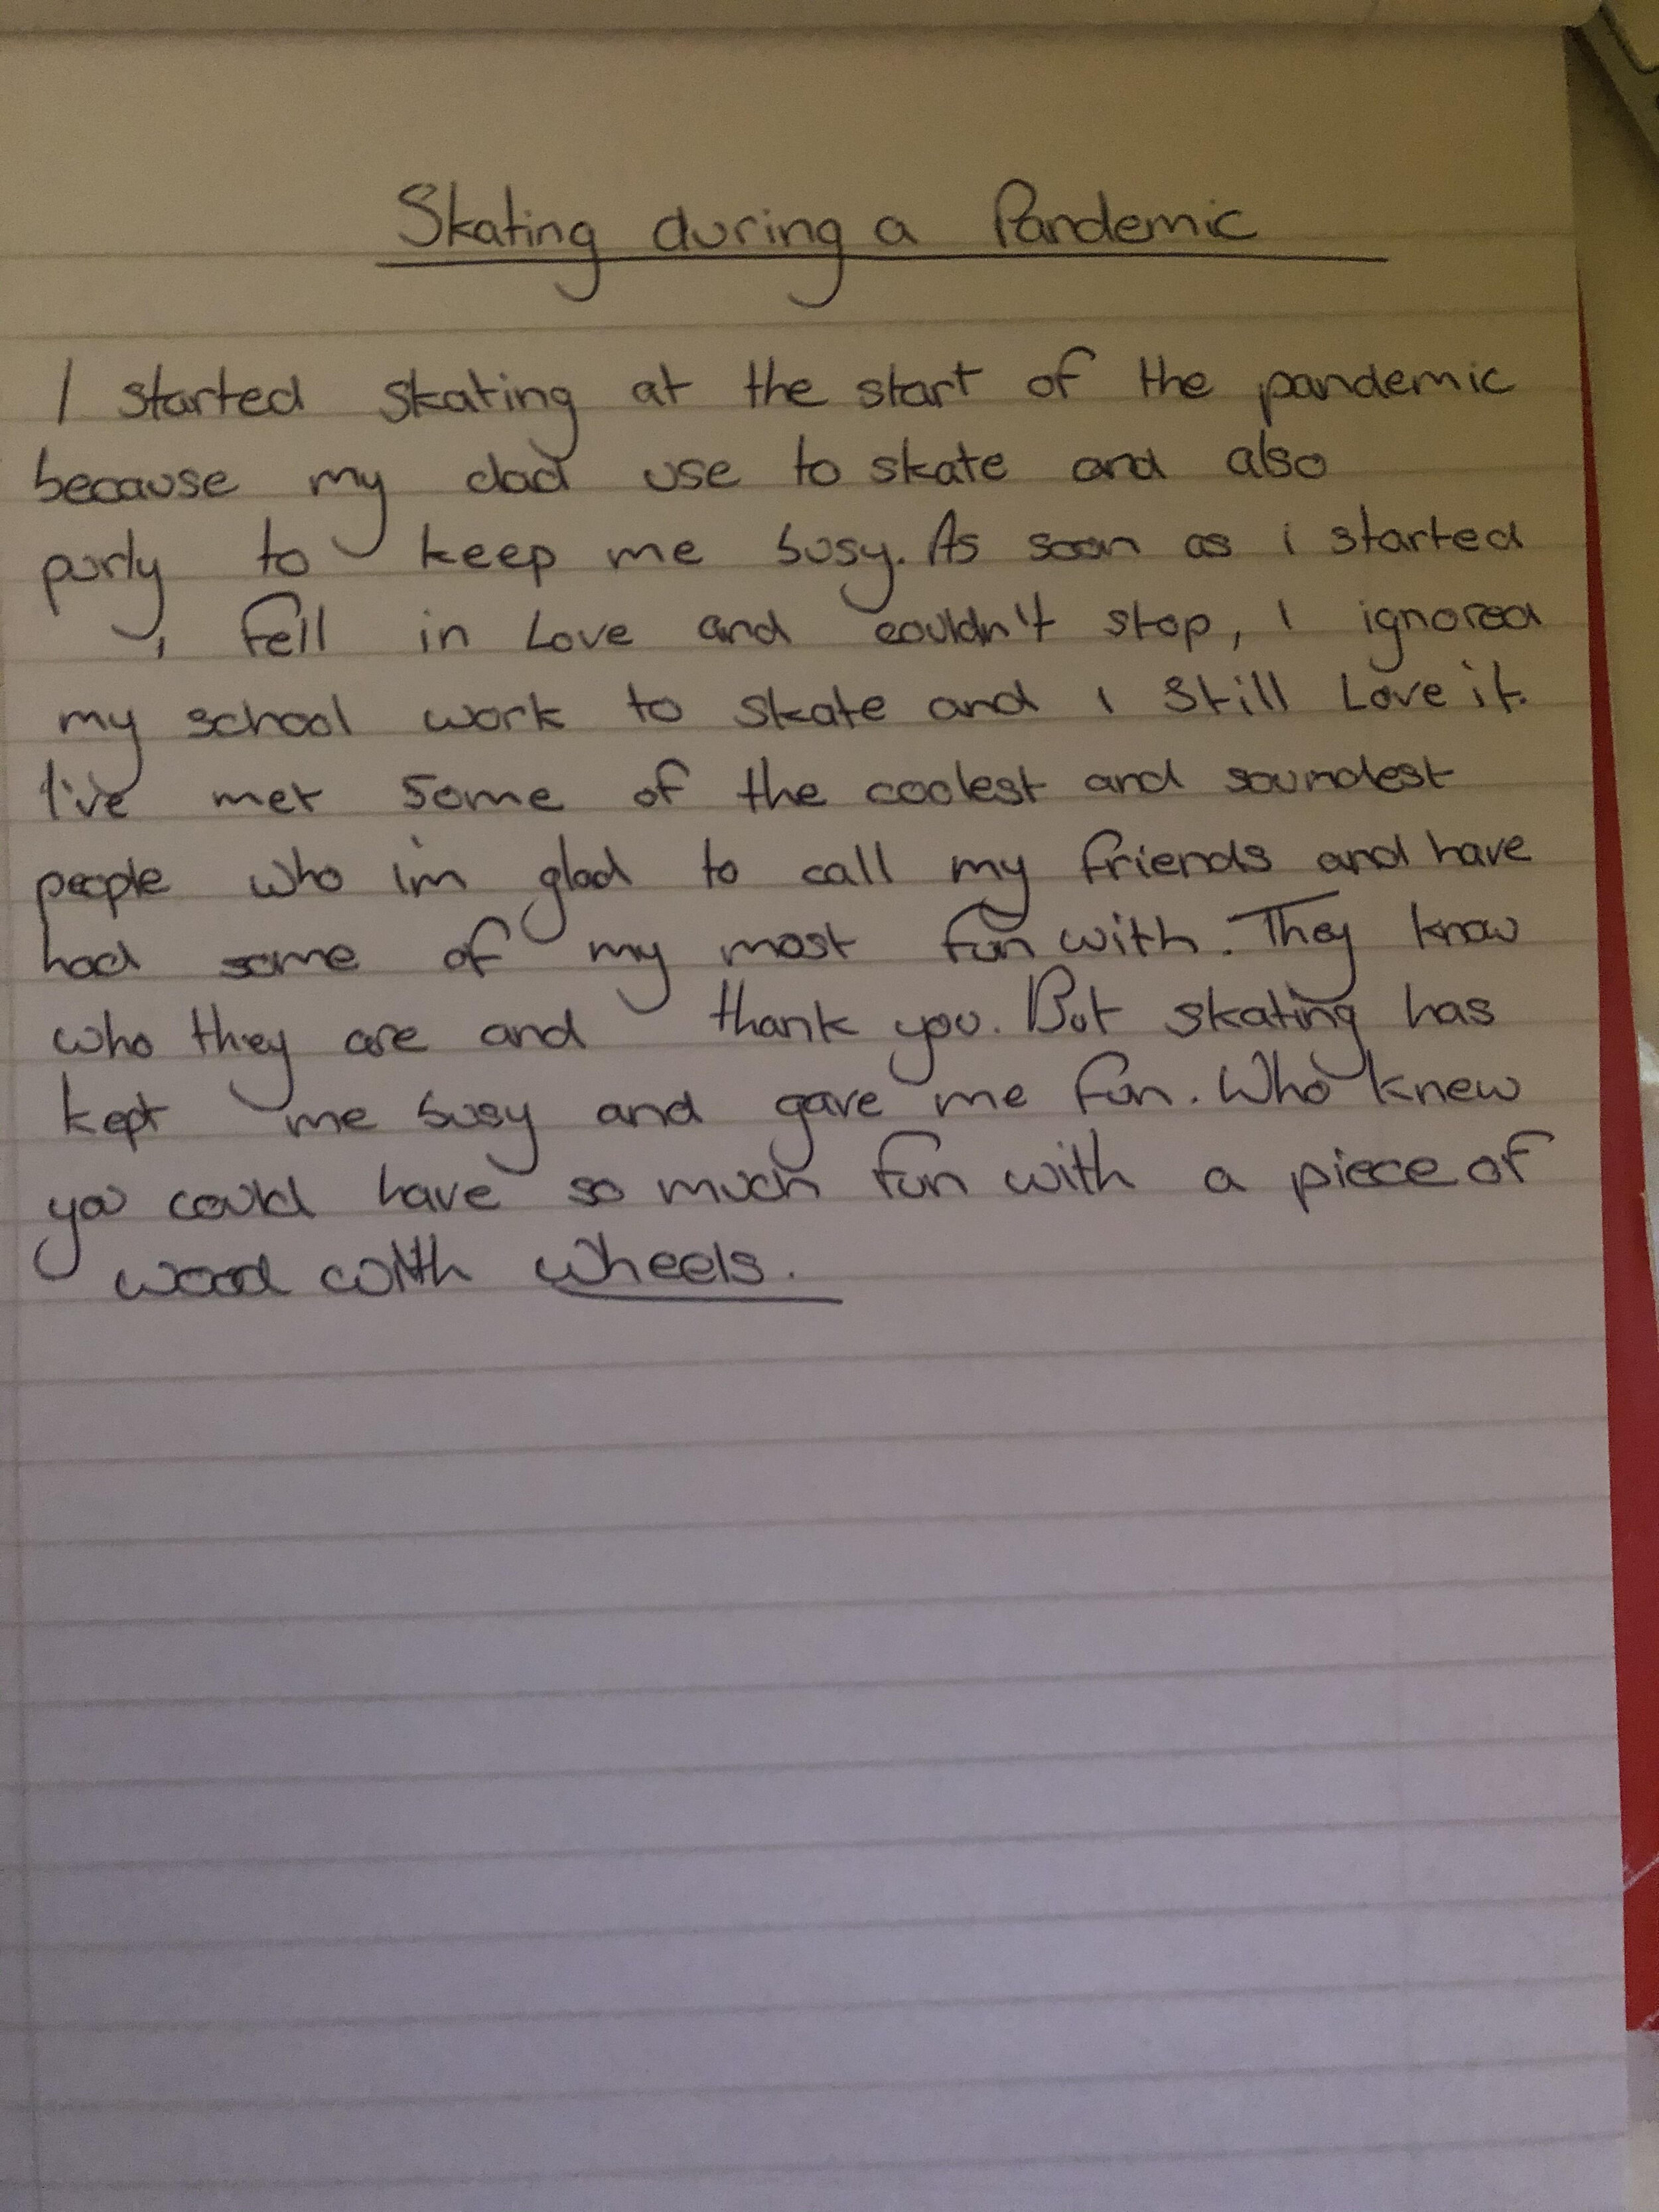 Skating during a Pandemic
I started skating at the start of the pandemic
because my dad use to skate and also
purly to keep me busy. As soon as i started
i fell in Love and couldn't stop, I ignored
my school work to skate and i still Love it.
I've met some of the coolest and soundest
people who i'm glad to call my friends and have
had some of my most fun with. They know
who they are and thank you. But skating has
kept me busy and gave me fun. Who knew
you could have so much fun with a piece of
wood with wheels.